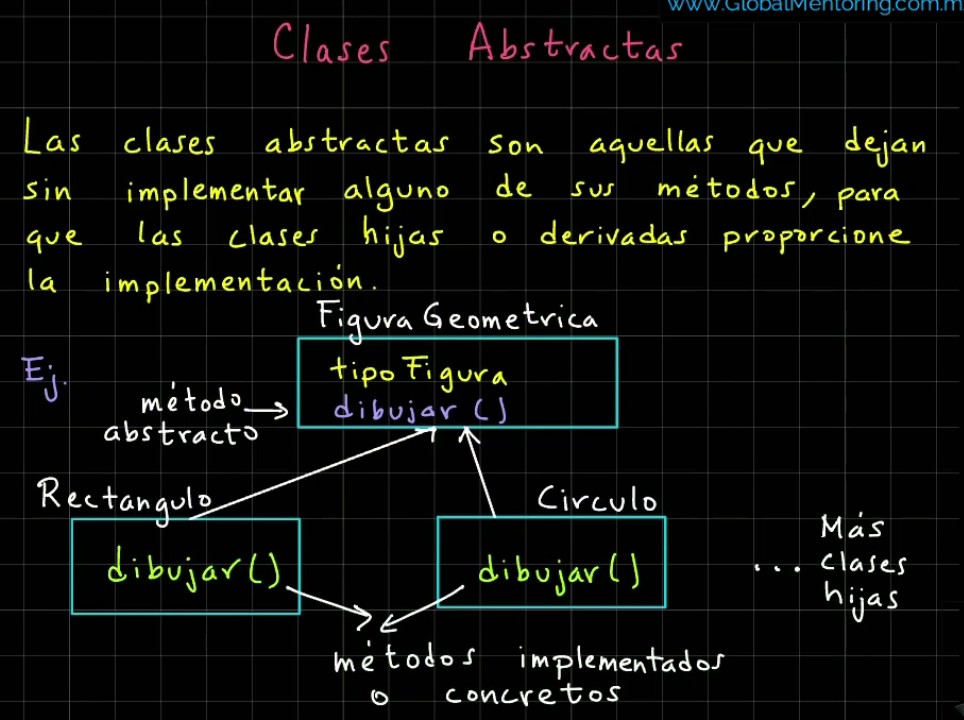 www.GlobalMentoring.com.m
Clases Abstractas
Las clases abstractas son aquellas que dejan
sin implementar alguno de sus métodos, para
que las clases hijas o derivadas proporcione
la implementación.
Figura Geometrica
Ej.
tipo Figura
método
dibujar ()
abstracto
Rectangulo
Circulo
dibujar()
dibujar()
... Más
clases
hijas
métodos implementados
o concretos